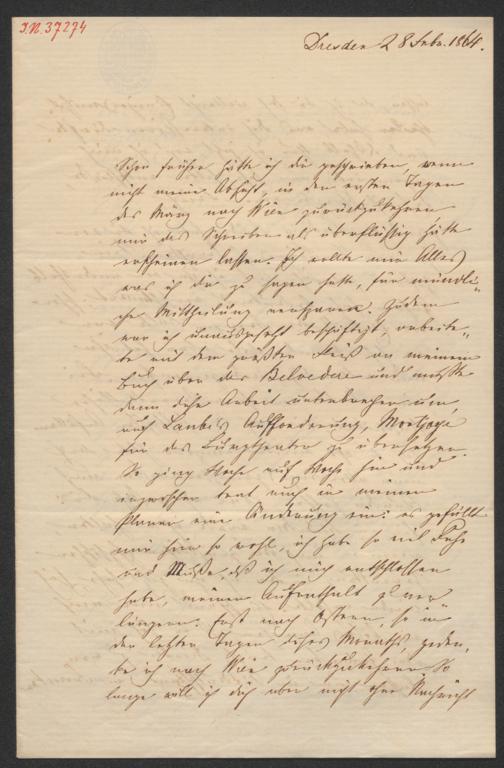 I.N. 37274
Dresden 28 Febr. 1864.
Schon früher hätte ich dir geschrieben, wenn
nicht meine Absicht, in den ersten Tagen
des März nach Wien zurückzukehren,
mir das Schreiben als überflüssig hätte
erscheinen lassen. Ich wollte mir Alles,
was ich dir zu sagen hatte, für mündli-
che Mittheilung versparen. Zudem
war ich unausgesetzt beschäftigt, arbeite-
te mit dem größten Fleiß an meinem
Buch über das Belvedere und mußte
dann diese Arbeit unterbrechen um,
nach Laube's Aufforderung, Montjoye
für das Burgtheater zu übersetzen.
So ging Woche auf Woche hin und
inzwischen trat auch in meinen
Planen eine Änderung ein: es gefällt
mir hier so wohl, ich habe so viel Ruhe
und Muße, daß ich mich entschlossen
habe, meinen Aufenthalt zu ver-
längern. Erst nach Ostern, so in
den letzten Tagen dieses Monaths, geden-
ke ich nach Wien zurückzukehren. So
lange will ich dich aber nicht ohne Nachricht